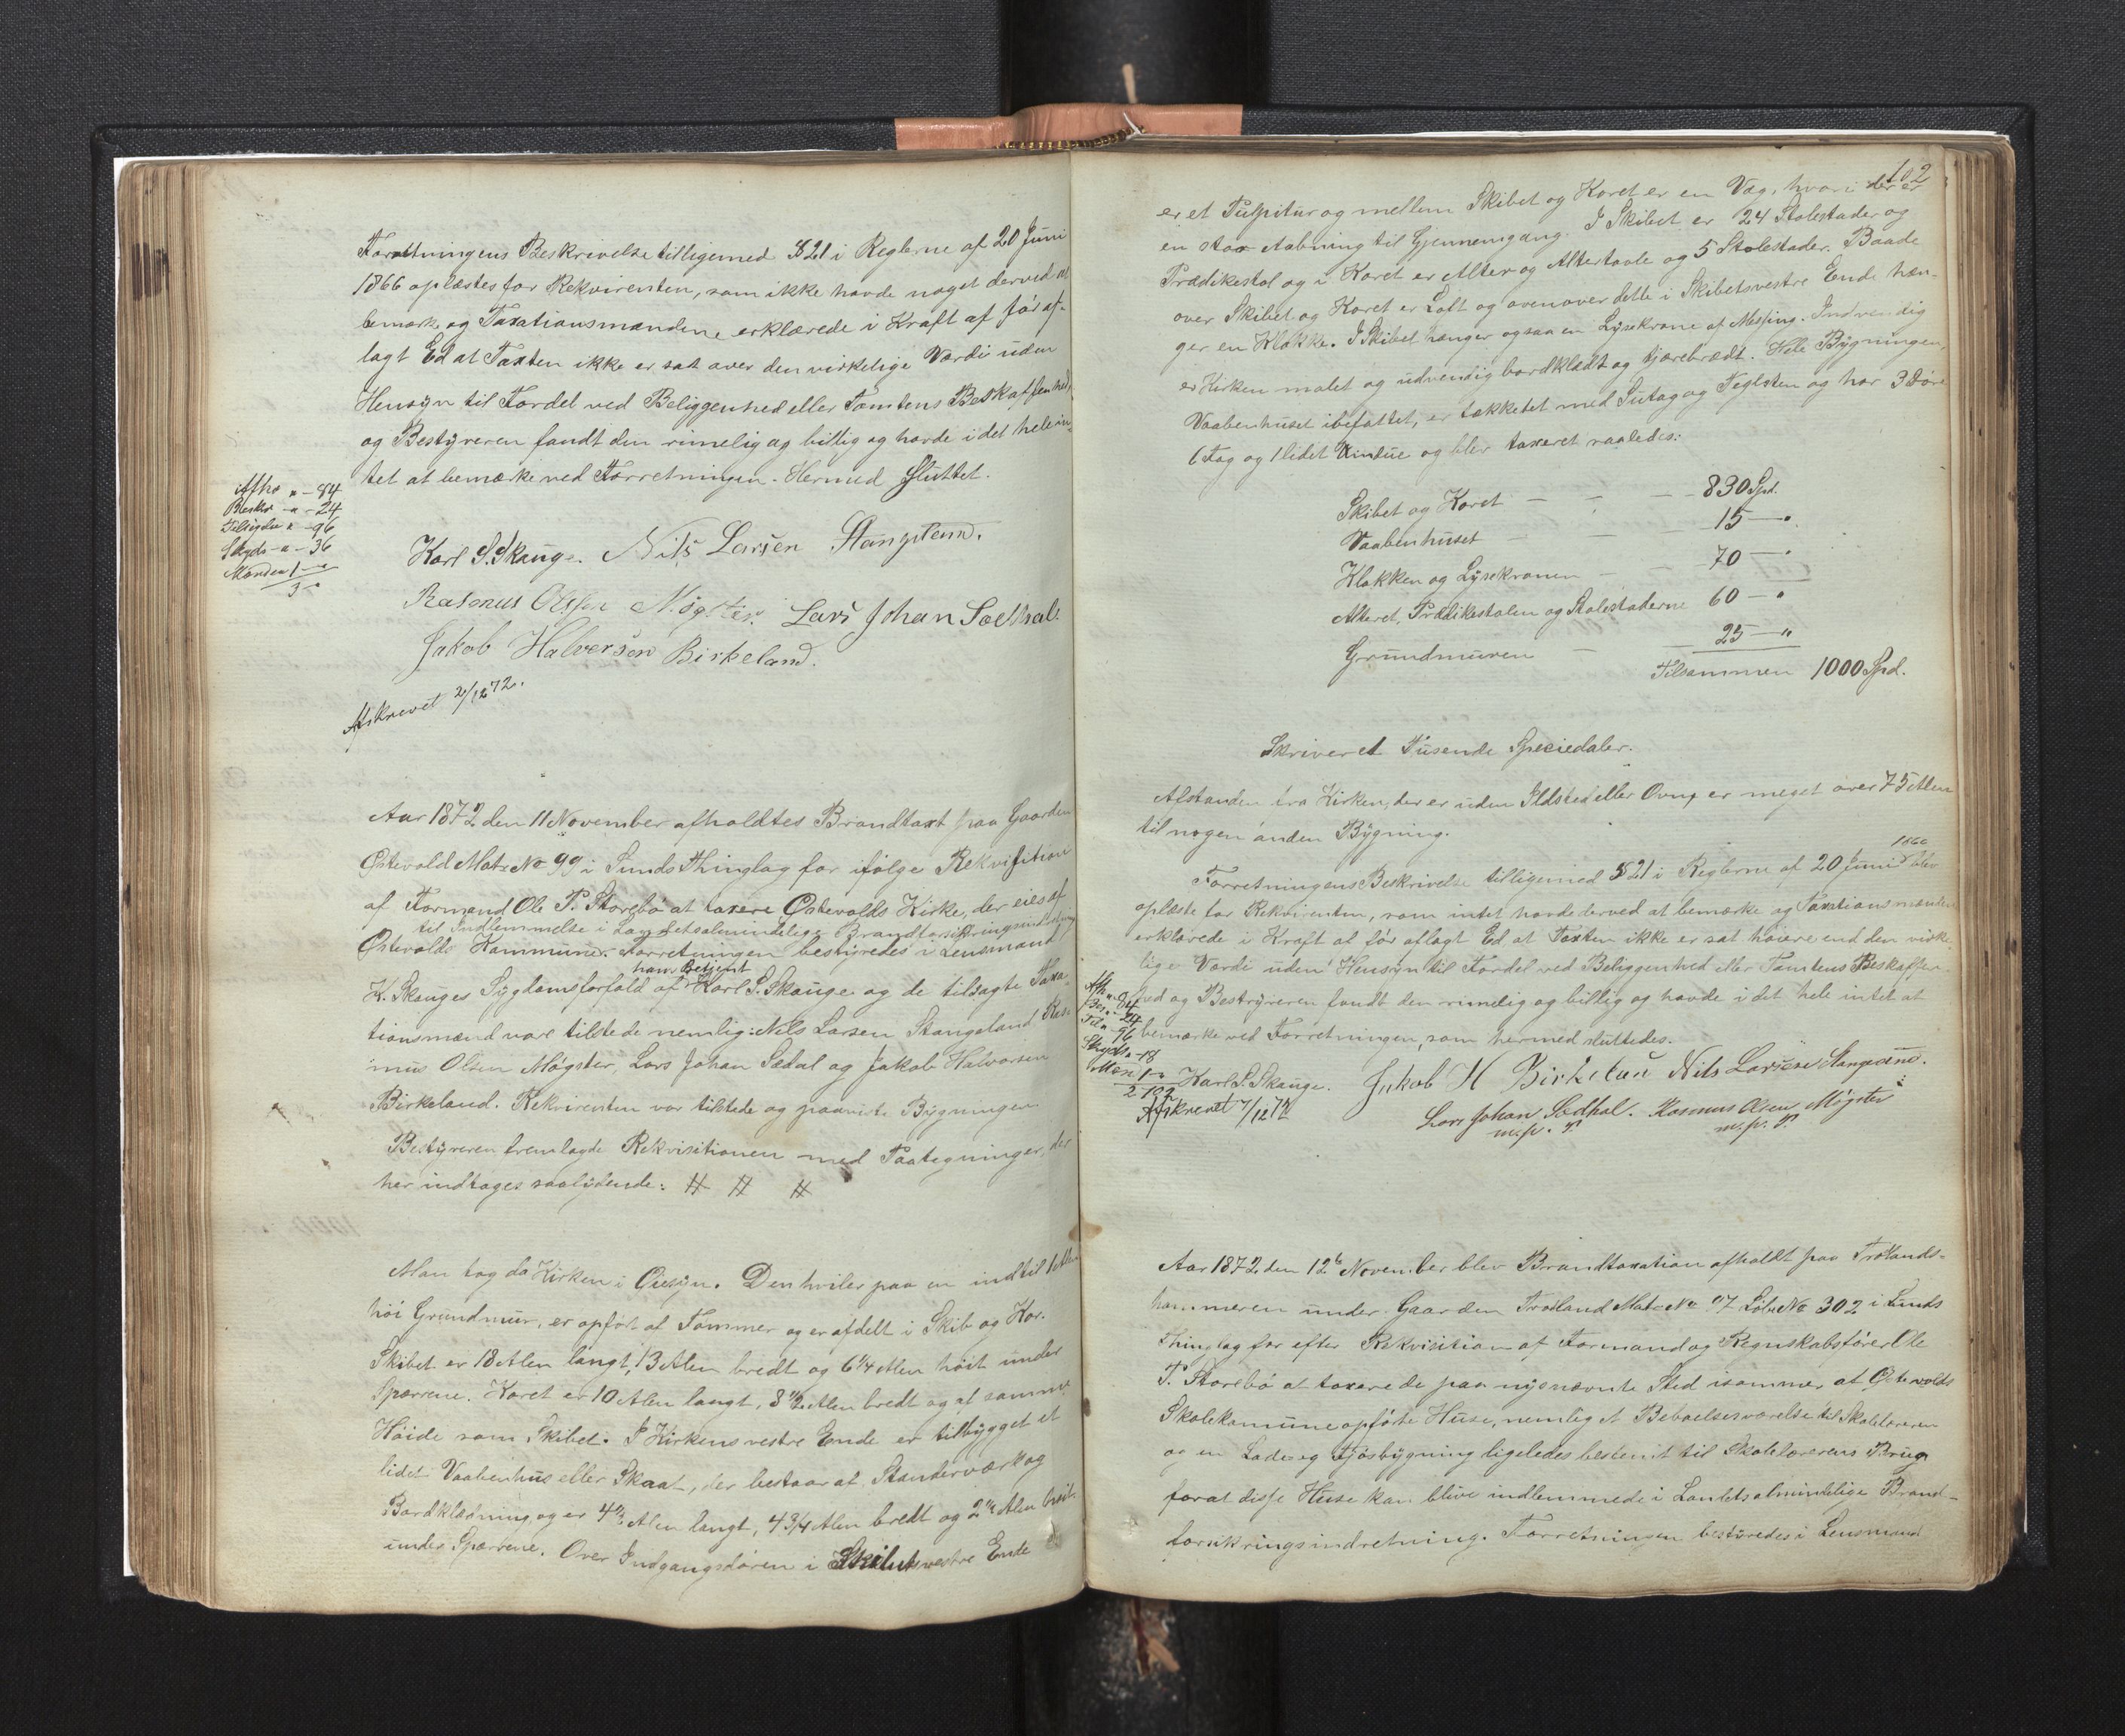 Forretningens Beskrivelse tilligemed §21 i Reglerne af 20 Juni
1866 oplæstes for Rekvirenten, som ikke havde noget derved at
bemærke og Taxationsmændene erklærede i Kraft af før af-
lagt Ed at Taxten ikke er sat over den virkelige Værdi uden
Hensyn til Fordel ved Beliggenhed eller Tomtens Beskaffenhed,
og Bestyreren fandt den rimelig og billig og havde i det hele in-
tet at bemærke ved Forretningen. Hermed sluttet.
Afho " - 84
Beskr - " - 24
Tilsigelse " - 96
Skyds - " - 36
Mænden 1 - "
3 "
Karl S. Skauge. Nils Larsen Stangeland.
Rasmus Olsen Møgster. Lars Johan Sædhal.
Jakob Halversen Birkeland.
Afskrevet 2/12 72.
Aar 1872 den 11 November afholdtes Brandtaxt paa Gaarden
Østevold Matr No 99 i Sunds Thinglag for ifølge Rekvisition
af Formand Ole P. Storebø at taxere Østevolds Kirke, der eies af
til Indlemmelse i Landets almindelige Brandforsikringsindretning
Østevolds Kommune. Forretningen bestyredes i Lensmand
hans Betjent
K. Skauges Sygdomsforfald af Karl S. Skauge og de tilsagte Taxa-
tionsmænd vare tilstede nemlig: Nils Larsen Stangeland Ras-
mus Olsen Møgster, Lars Johan Sædal og Jakob Halvorsen
Birkeland. Rekvirenten var tilstede og paaviste Bygningen.
Bestyreren fremlagde Rekvisitionen med Paategninger, der
her indtages saalydende: # # #
Man tog da Kirken i Øiesyn. Den hviler paa en indtil 1 Alen
høi Grundmur, er opført af Tømmer og er afdelt i Skib og Kor.
Skibet er 18 Alen langt, 13 Alen bredt og 6 1/4 Alen høit under
Sparrene. Koret er 10 Alen langt, 8 1/2 Alen bredt og af samme
Høide som Skibet. I Kirkens vestre Ende er tilbygget et
lidet Vaabenhus eller Skaat, der bestaar af Stænderværk og
Bordklædning og er 4 1/2 Alen langt, 4 3/4 Alen bredt og 2 1/2 Alen høit
under Sparrene. Over Indgangsdøren i Skibets vestre Ende
102
er et Pulpitur og mellem Skibet og Koret er en Væg, hvori der er
en stor Aabning til Gjennemgang. I Skibet er 24 Stolestader og
Prædikestol og i Koret er Alter og Altertavle og 5 Stolestader. Baade
over Skibet og Koret er Loft og ovenover dette i Skibets vestre Ende hæn-
ger en Klokke. I Skibet hænger ogsaa en Lysekrone af Messing. Indvendig
er Kirken malet og udvendig bordklædt og tjærebrædt. Hele Bygningen,
Vaabenhuset ibefattet, er takketet med Sutag og Teglsten og har 3 Døre
6 Fag og 1 lidet Vindue og blev taxeret saaledes:
Skibet og Koret — — — 830 Spd.
Vaabenhuset — — — 15 — "
Klokken og Lysekronen — — 70 — "
Alteret, Prædikestolen og Stolestaderne 60 — "
Grundmuren — 25 — "
Tilsammen 1000 Spd.
Skriver et Tusende Speciedaler.
Afstanden fra Kirken, der er uden Ildsted eller Ovn, er meget over 75 Alen
til nogen anden Bygning.
1866
Forretningens Beskrivelse tilligemed §21 i Reglerne af 20 Juni blev
oplæst for Rekvirenten, som intet havde derved at bemærke og Taxationsmændene
erklærede i Kraft af før aflagt Ed at Taxten ikke er sat høiere end den virke-
lige Værdi uden Hensyn til Fordel ved Beliggenhed eller Tomtens Beskaffen-
hed og Bestyreren fandt den rimelig og billig og havde i det hele intet at
bemærke ved Forretningen, som hermed sluttedes.
Afh " - 84
Bes " - 24
Til " - 96
Skyds " - 18
Mæn 1 - "
2 - 102
Karl S. Skauge. Jakob H Birkelan Nils Larsen Stangeland.
Afskrevet 7/12 72
Lars Johan Sædhal. Rasmus Olsen Møgster
m. p. P. m. p. P.
Aar 1872 den 12te November blev Brandtaxation afholdt paa Trølands-
hammeren under Gaarden Trøland Matr No 97 Løbe No 302 i Sunds
Thinglag for efter Rekvisition af Formand og Regnskabsfører Ole
P. Storebø at taxere de paa nysnævnte Sted isommer af Østevolds
Skolekomune opførte Huse, nemlig et Beboelsesværelse til Skolelæreren
og en Lade og Fjøsbygning ligeledes bestemt til Skolelærerens Brug
forat disse Huse kan blive indlemmede i Landets almindelige Brand-
forsikringsindretning. Forretningen bestyredes i Lensmand